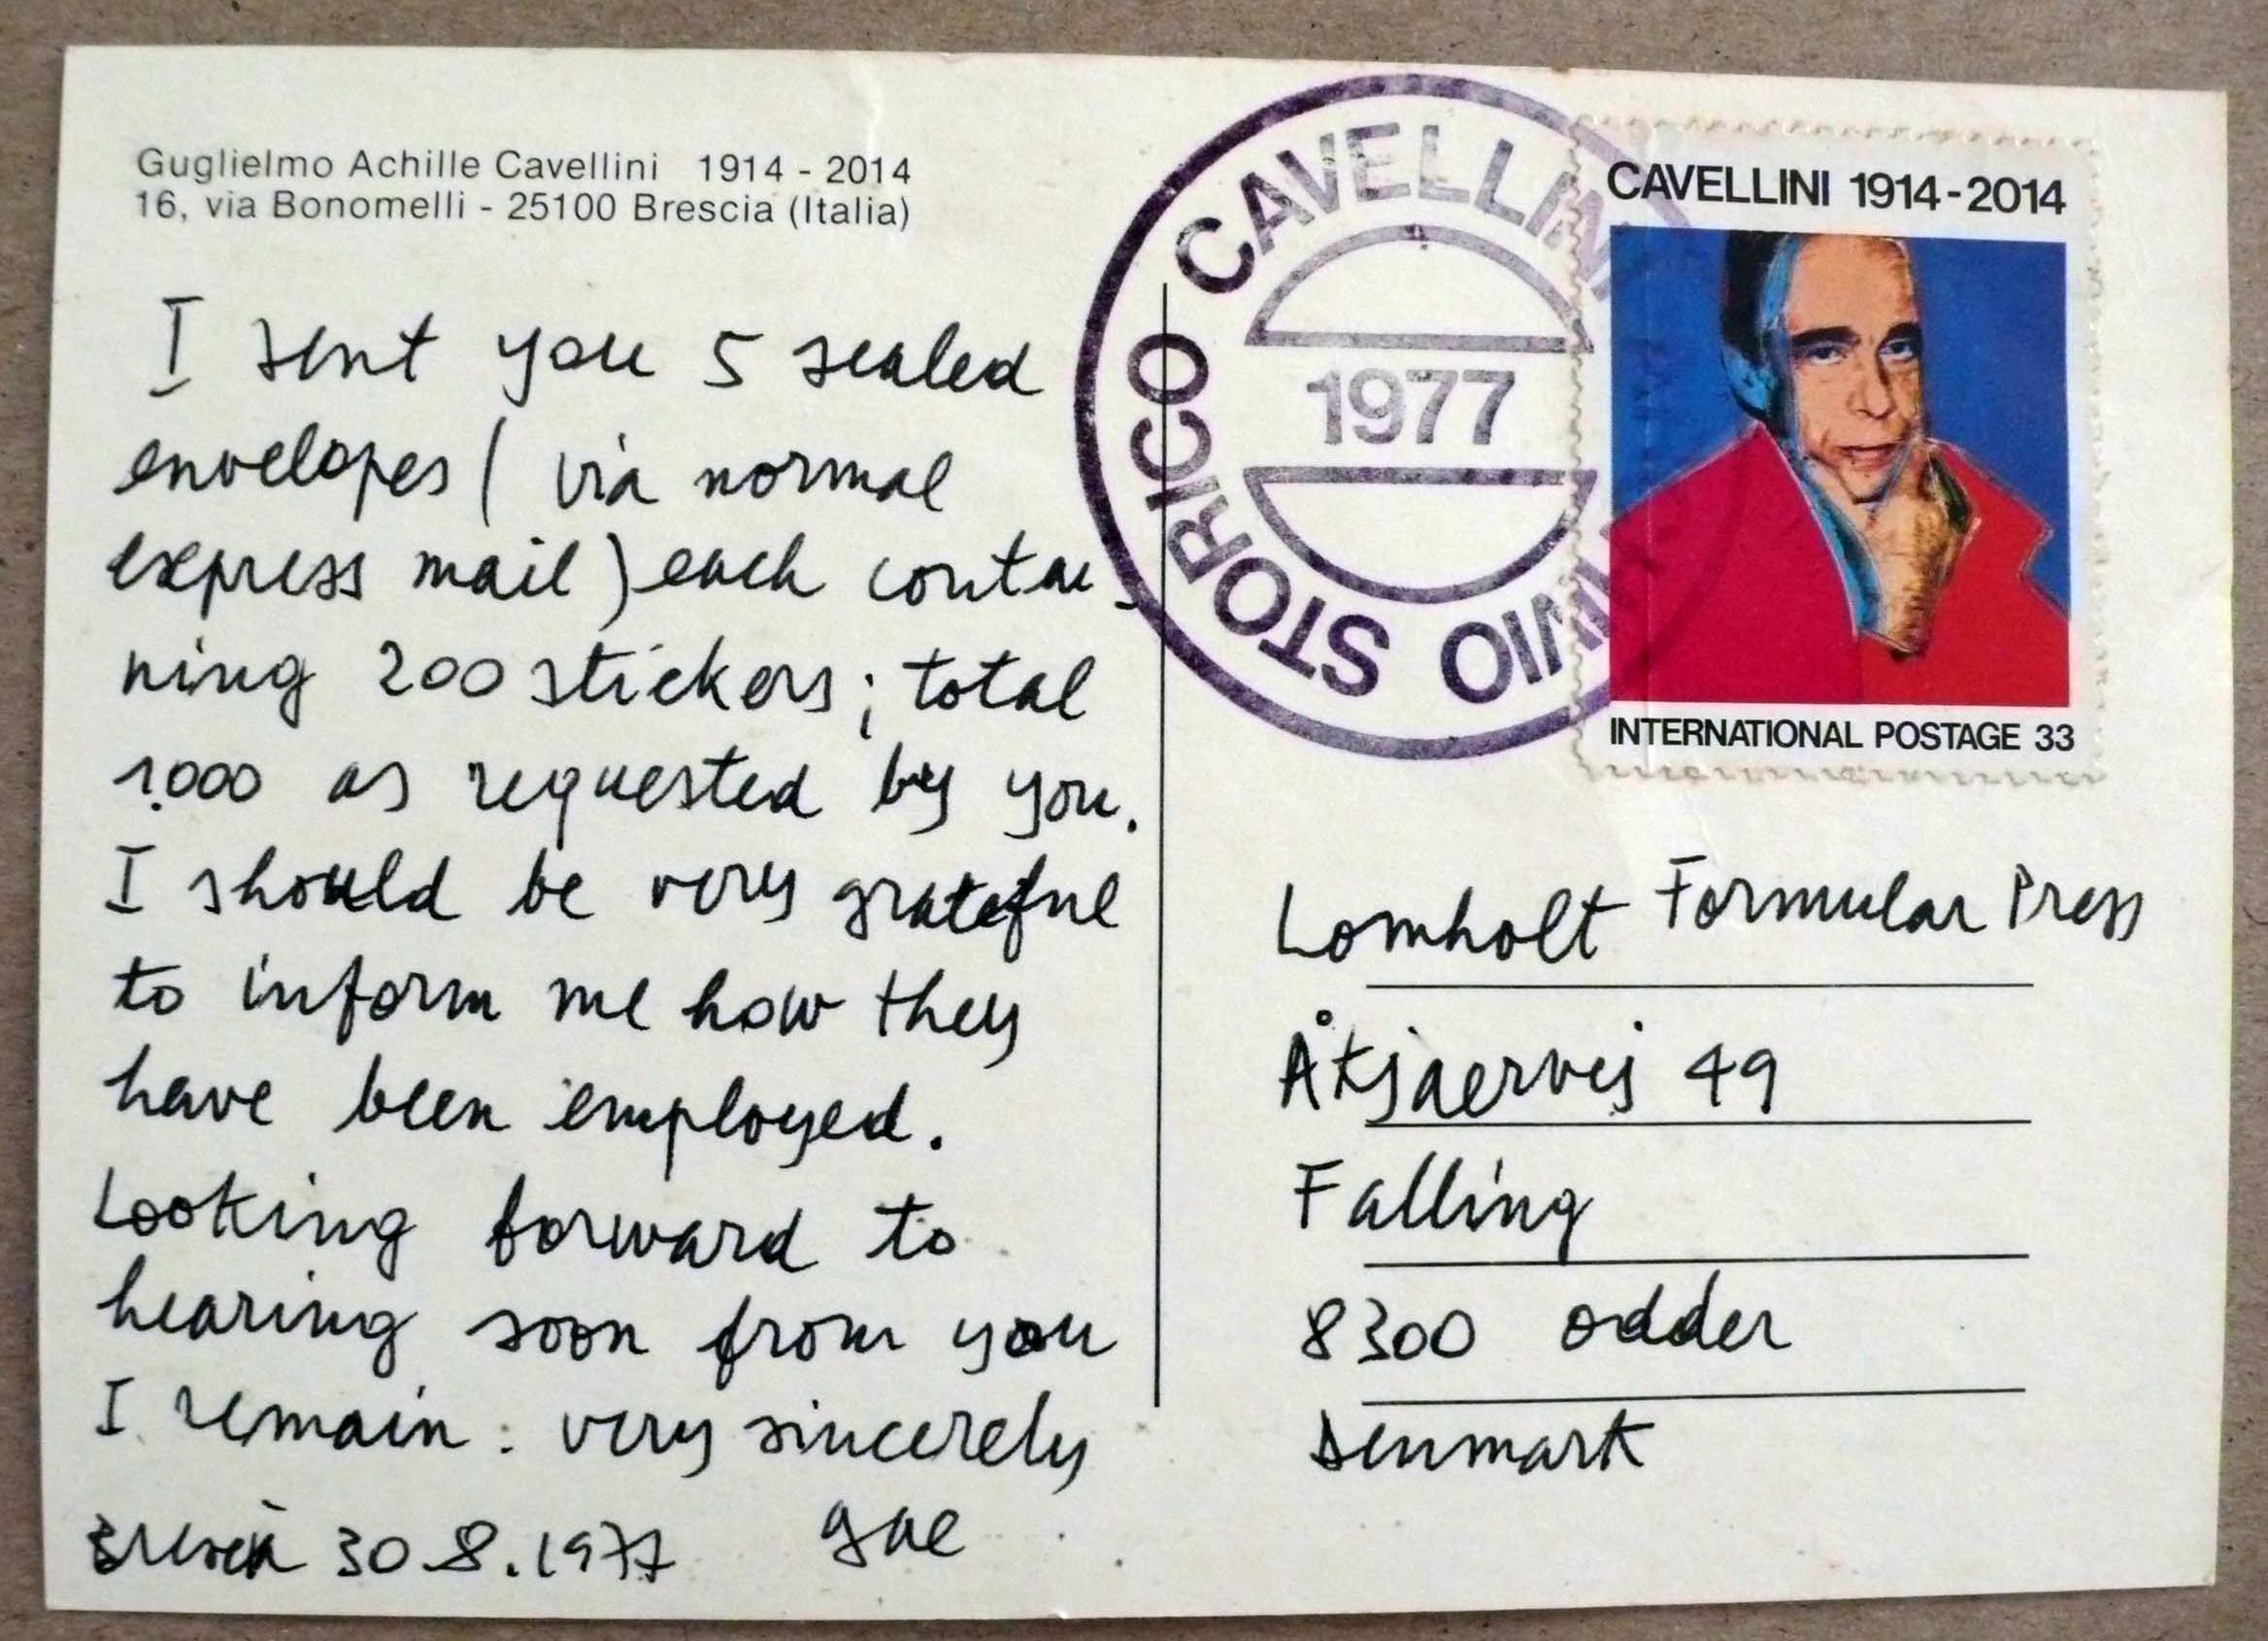 Guglielmo Achille Cavellini 1914 - 2014
16, via Bonomelli - 25100 Brescia (Italia)
I sent you 5 sealed
envelopes ( via normal
express mail ) each contai-
ning 200 stickers; total
1.000 as requested by you.
I should be very grateful
to inform me how they
have been employed.
Looking forward to
hearing soon from you
I remain: very sincerely
Brescia 30.8.1977 gac
STORICO CAVELLINI
1977
CAVELLINI 1914-2014
INTERNATIONAL POSTAGE 33
Lomholt Formular Press
Åkjaervej 49
Falling
8300 odder
Denmark